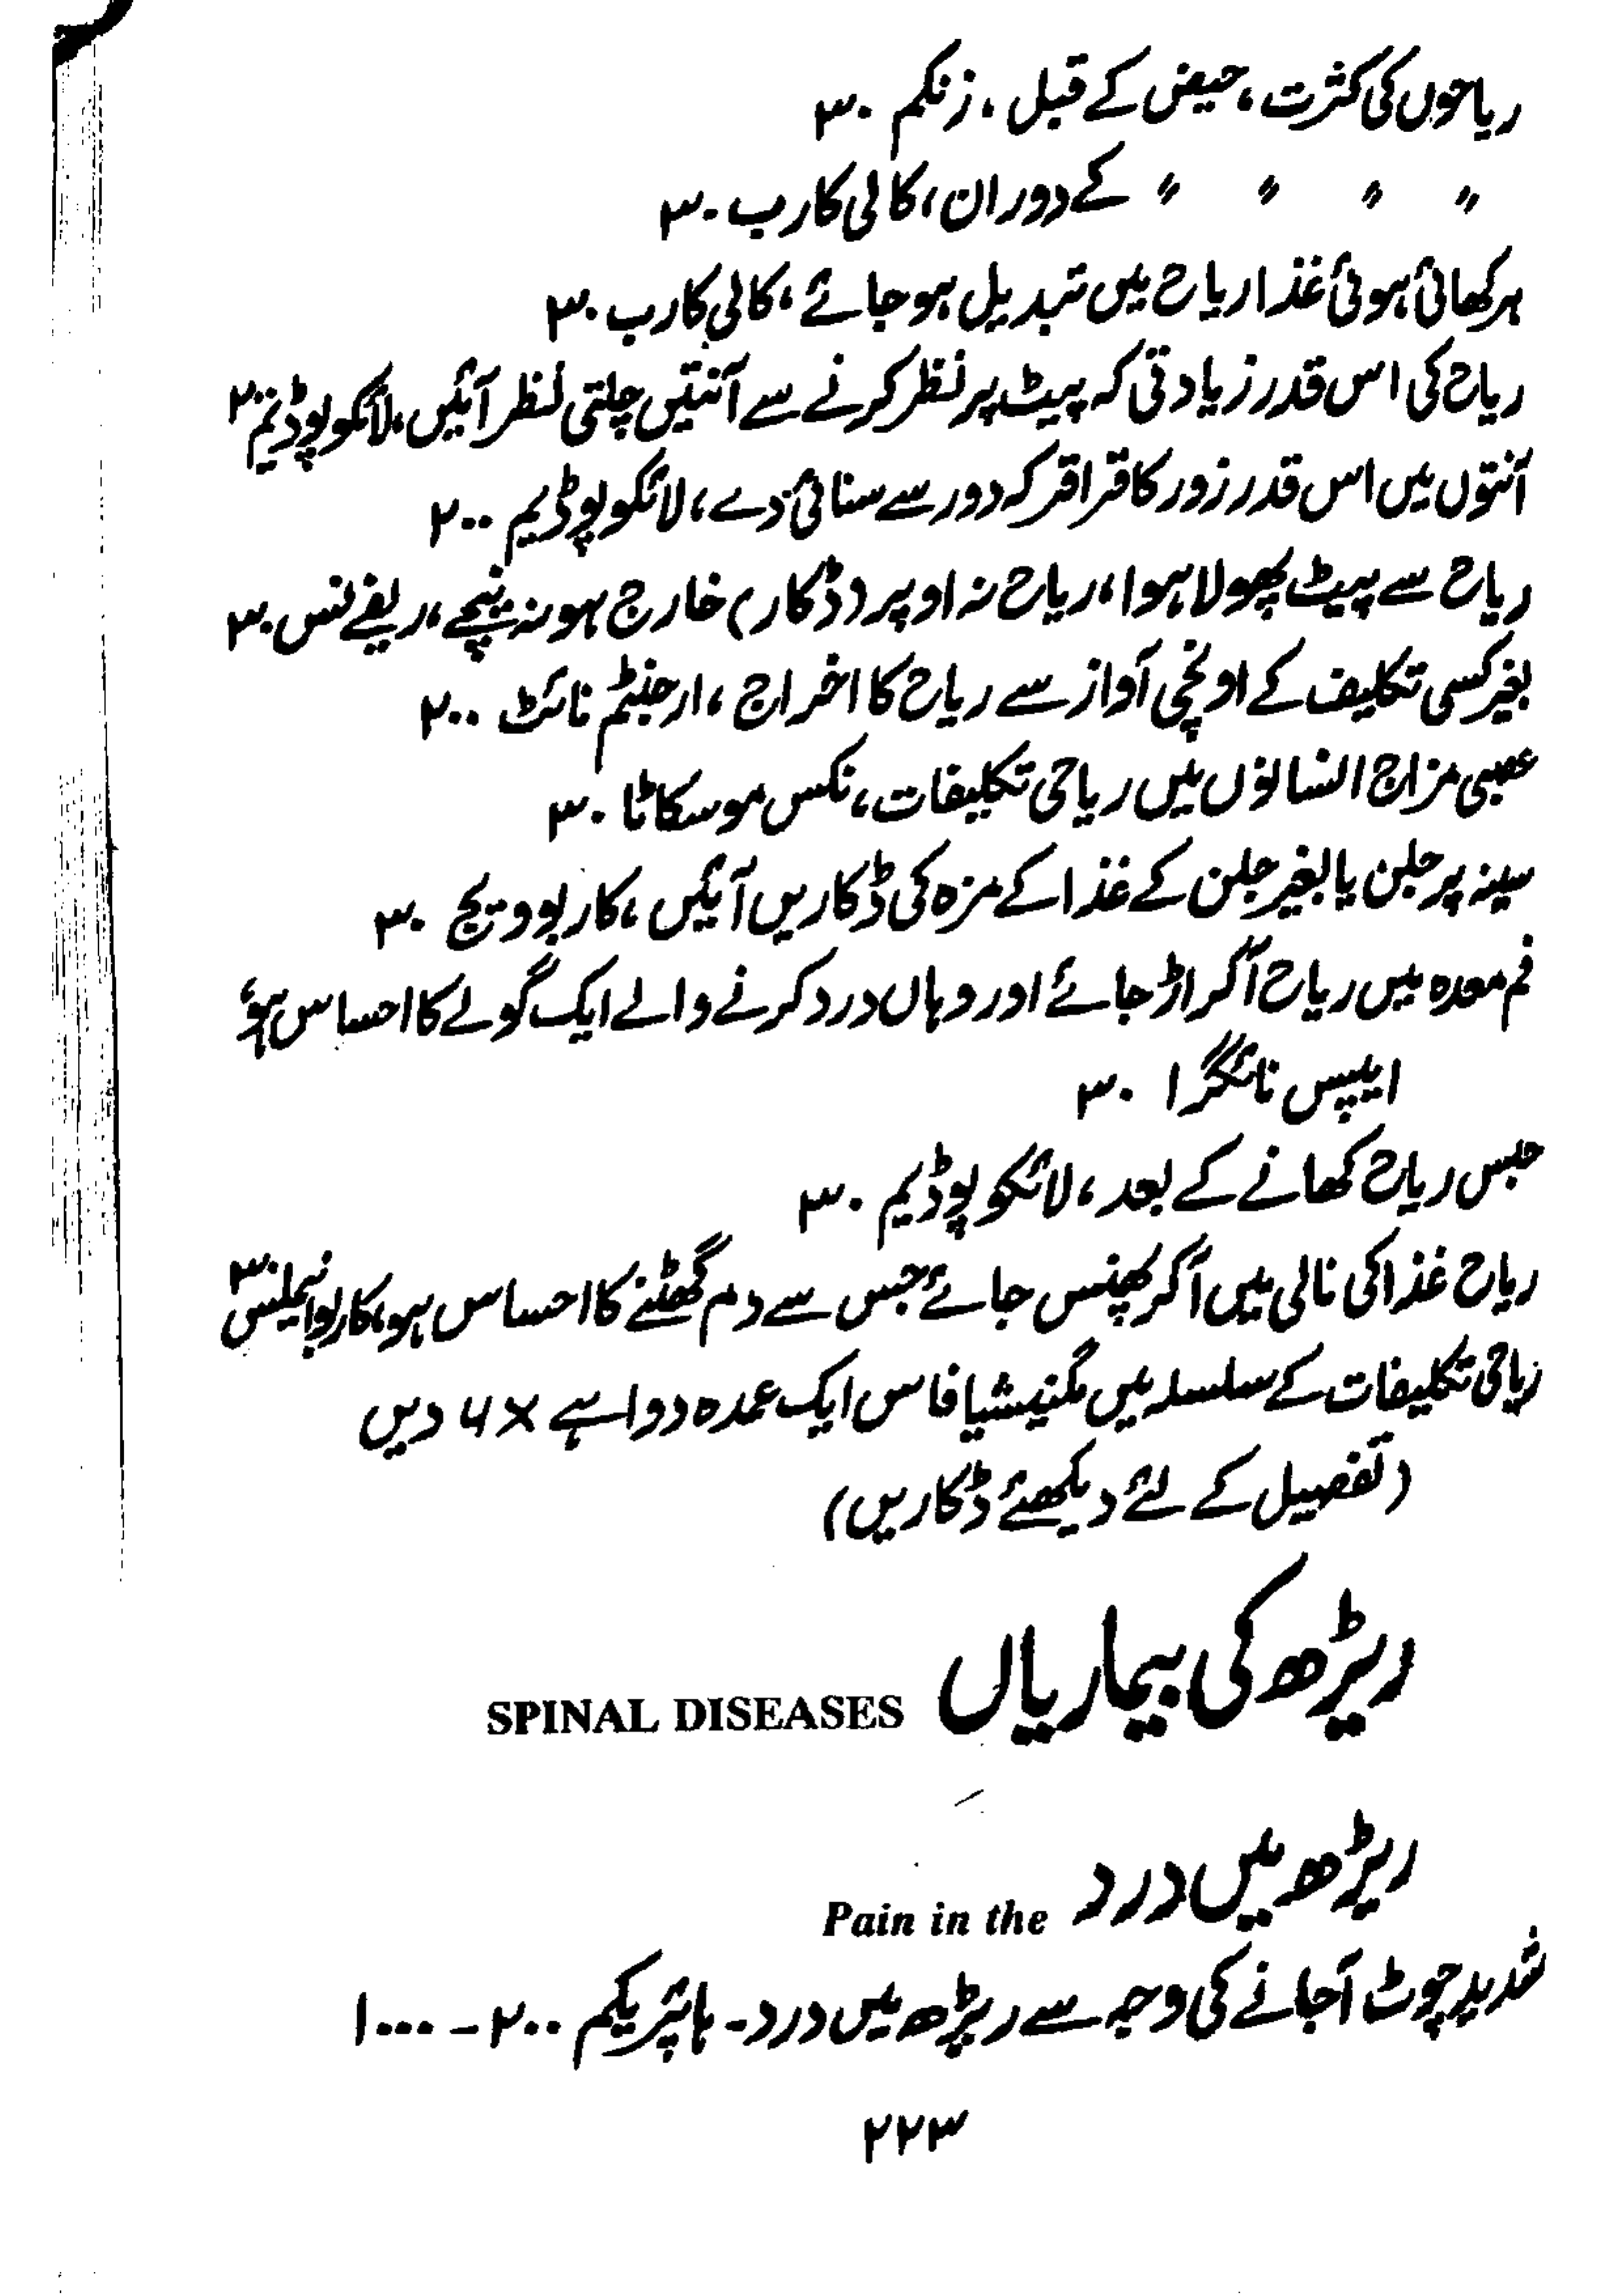 ریاحوں کی کثرت، حیض کے قبل، زنکم ۳۰
〃 〃 〃 〃 کے دوران، کالی کارب ۳۰
ہر کھائی ہوئی غذا ریاح میں تبدیل ہو جائے، کالی کارب ۳۰
ریاح کی اس قدر زیادتی کہ پیٹ پر نظر کرنے سے آنتیں چلتی نظر آئیں، لائکوپوڈیم
آنتوں میں اس قدر زور کا قراقر کہ دور سے سنائی دے، لائکوپوڈیم ۲۰۰
ریاح سے پیٹ پھولا ہوا، ریاح نہ اوپر (ڈکار) خارج ہو نہ نیچے، ریفے نس ۳۰
بغیر کسی تکلیف کے اونچی آواز سے ریاح کا اخراج، ارجنٹم نائٹ ۲۰۰
عصبی مزاج انسانوں میں ریاحی تکلیفات، نکس موسکاٹا ۳۰
سینہ پر جلن یا بغیر جلن کے غذا کے مزہ کی ڈکاریں آئیں، کاربوویج ۳۰
فم معدہ میں ریاح آکر اڑ جائے اور وہاں درد کرنے والے ایک گولے کا احساس ہو،
ایبیس نائگرا ۳۰
حبس ریاح کھانے کے بعد، لائکوپوڈیم ۳۰
ریاح غذا کی نالی میں آکر پھنس جائے جس سے دم گھٹنے کا احساس ہو، کاربوانیملس ۳۰
ریاحی تکلیفات کے سلسلہ میں مگنیشیا فاس ایک عمدہ دوا ہے ۶x دیں
(تفصیل کے لئے دیکھئے ڈکاریں)
ریڑھ کی بیماریاں SPINAL DISEASES
ریڑھ میں درد Pain in the
شدید چوٹ آجانے کی وجہ سے ریڑھ میں درد۔ ہائپریکم ۲۰۰ - ۱۰۰۰
۲۲۳